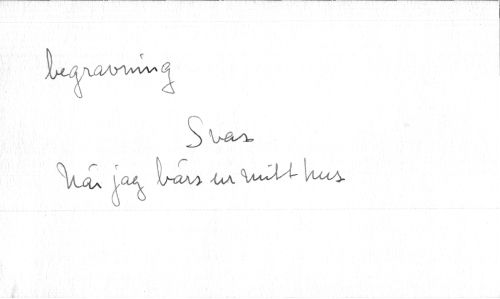 begravning
Svas
När jag bärs ur mitt hus